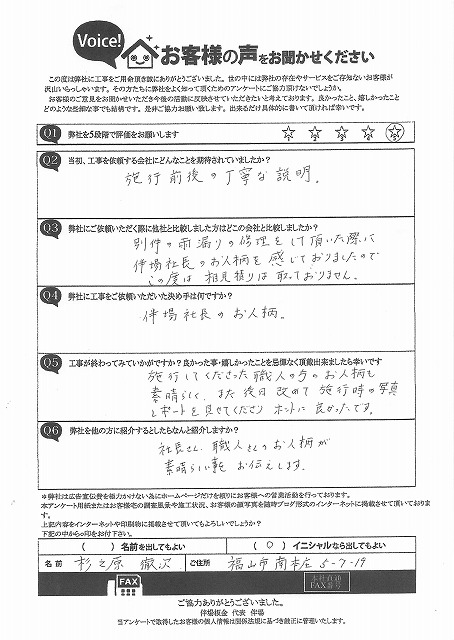 Voice!
お客様の声をお聞かせください
この度は弊社に工事をご用命頂き誠にありがとうございました。世の中には弊社の存在やサービスをご存知ないお客様が
沢山いらっしゃいます。その方たちに弊社をよく知って頂くためのアンケートにご協力頂けないでしょうか。
お客様のご意見をお聞かせいただき今後の活動に反映させていただきたいと考えております。良かったこと、嬉しかったこと
どのような些細な事でも結構です。是非ご協力お願い致します。出来るだけ具体的に書いて頂ければ幸いです。
Q1 弊社を5段階で評価をお願いします
1 2 3 4 5
Q2 当初、工事を依頼する会社にどんなことを期待されていましたか？
施行前後の丁寧な説明。
Q3 弊社にご依頼いただく際に他社と比較しました方はどこの会社と比較しましたか？
別件の雨漏りの修理をして頂いた際に
伴場社長のお人柄を感じておりましたので
この度は相見積りは取っておりません。
Q4 弊社に工事をご依頼いただいた決め手は何ですか？
伴場社長のお人柄。
Q5 工事が終わってみていかがですか？良かった事・嬉しかったことを忌憚なく頂戴出来ましたら幸いです
施行してくださった職人の方のお人柄も
素晴らしく、また後日改めて施行時の写真
レポートを見せてくださり ホントに良かったです。
Q6 弊社を他の方に紹介するとしたらなんと紹介しますか？
社長さん、職人さんのお人柄が
素晴らしい事を お伝えします。
＊弊社は広告宣伝費を極力かけない為にホームページだけを頼りにお客様への営業活動を行っております。
本アンケート用紙またはお客様宅の創業風景や施工状況、お客様の顔写真を随時ブログ形式のインターネットに掲載させて頂いておりま
す。
上記内容をインターネットや印刷物に掲載させて頂いてもよろしいでしょうか？
下記の中から○印をお付下さい。
（ ） 名前を出してもよい （ ○ ） イニシャルなら出してもよい
名前 杉之原 徹次 ご住所 福山市南本庄5-7-19
FAX 本社直通 FAX番号
ご協力ありがとうございました。
伴場板金 代表 伴場
当アンケートで取得したお客様の個人情報は関係法規に基づき厳正に管理いたします。